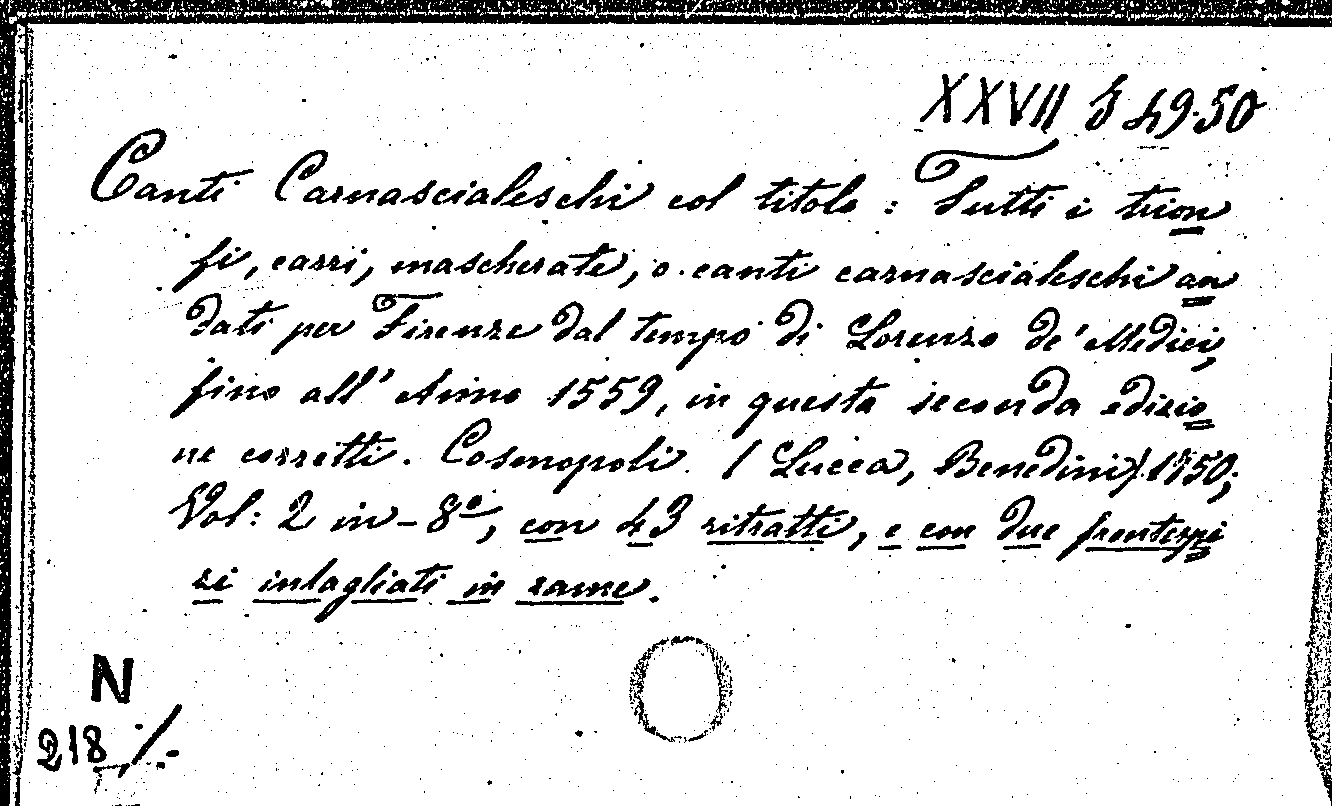 XXVII G 49.50
Canti Carnascialeschi col titolo : Tutti i trion
fi, carri, mascherate, o canti carnascialeschi an
dati per Firenze dal tempo di Lorenzo de' Medici,
fino all' Anno 1559, in questa seconda edizio
ne corretti. Cosmopoli. (Lucca, Benedini) 1750;
Vol: 2 in-8º, con 43 ritratti, e con due frontespi
zi intagliati in rame.
N
218